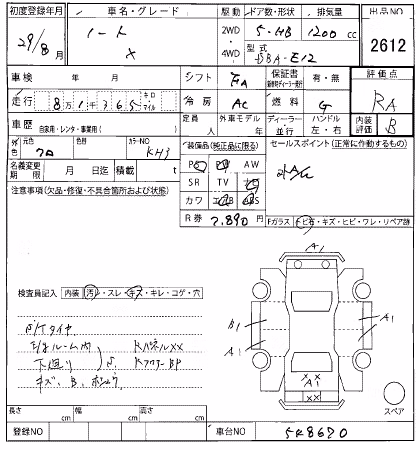 初度登録年月 車名・グレード 駆動 ドア数・形状 排気量 出品NO
29/8月 ノート X 2WD 4WD 5・HB 1200 cc
型式 DBA-E12 2612
車検 年 月 シフト FA 保証書 有・無 評価点
走行 8万1千365 キロ マイル 冷房 AC 燃料 G RA
車歴 自家用・レンタ・事業用( ) 定員 人 外車モデル 年 ディーラー 並行 ハンドル 左・右 内装 B
外色 元色 クロ 色替 カラーNO KH3
装備品(純正品に限る) セールスポイント(正常に作動するもの)
名義変更期限 月 日迄 積載 t
PS PW AW
SR TV ナビ
カワ エアB ABS
R券 7,890円
注意事項(欠品・修復・不具合箇所および状態)
Fガラス トビ石・キズ・ヒビ・ワレ・リペア跡
検査員記入 内装 汚れ・スレ・キズ・キレ・コゲ・穴
P/Kタイヤ
シミ ルーム内 RパネルXX
下廻り サ RフロアーBP
キズ、B、
A1
B1
A1
A1
A1
XX
スペア
長さ cm 幅 cm 高さ cm
登録NO 車台NO 548670